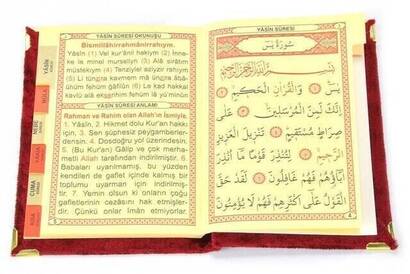 YÂSİN SÛRESİ OKUNUŞU
Bismillâhirrahmânirrahıym.
Yâsîn (1) Vel kur'ânil hakiym (2) İnne-
ke le minel murseliyn (3) Alâ sırâtım
müstekıym (4) Tenziylel aziyzir rahıym
(5) Li tünzira kavmem mâ ünzira âbâ-
ühüm fehüm ğâfilûn (6) Le kad hakkal
kavlü alâ ekserihim fehüm lâ yü'minûn
YÂSİN SÛRESİ ANLAMI
Rahman ve Rahim olan Allah'ın ismiyle.
1. Yâsîn, 2. Hikmet dolu Kur'an hakkı
için, 3. Sen şüphesiz peygamberler-
densin. 4. Dosdoğru yol üzerindesin.
5. (Bu Kur'an) Gâlip ve çok merha-
metli Allah tarafından indirilmiştir. 6.
Babaları uyarılmamış, bu yüzden
kendileri de gaflet içinde kalmış bir
toplumu uyarman için indirilmiş-
tir. 7. Yemin olsun ki onların çoğu
gafletlerinin cezâsını hak etmişler-
dir. Çünkü onlar îman etmiyorlar.
YÂSİN SÛRESİ
سُورَةُ يٰسٓ
بِسْمِ اللّٰهِ الرَّحْمٰنِ الرَّحِيمِ
يٰسٓ ﴿١﴾ وَالْقُرْاٰنِ الْحَكِيمِ ﴿٢﴾
اِنَّكَ لَمِنَ الْمُرْسَلِينَ ﴿٣﴾ عَلٰى
صِرَاطٍ مُسْتَقِيمٍ ﴿٤﴾ تَنْزِيلَ الْعَزِيزِ
الرَّحِيمِ ﴿٥﴾ لِتُنْذِرَ قَوْمًا مَٓا اُنْذِرَ
اٰبَٓاؤُ۬هُمْ فَهُمْ غَافِلُونَ ﴿٦﴾ لَقَدْ حَقَّ
الْقَوْلُ عَلٰٓى اَكْثَرِهِمْ فَهُمْ لَا يُؤْمِنُونَ
4